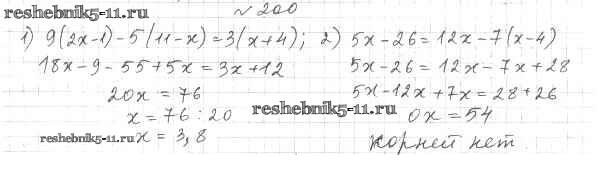 reshebnik5-11.ru № 200
1) 9(2x-1)-5(11-x)=3(x+4); 2) 5x-26=12x-7(x-4)
18x-9-55+5x=3x+12 5x-26=12x-7x+28
20x=76 5x-12x+7x=28+26
x=76:20 reshebnik5-11.ru 0x=54
reshebnik5-11.ru x=3,8 корней нет.